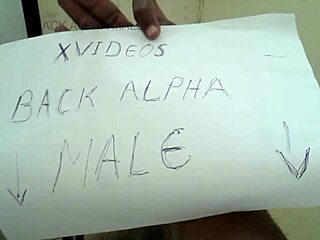 XVIDEOS
BACK ALPHA
MALE